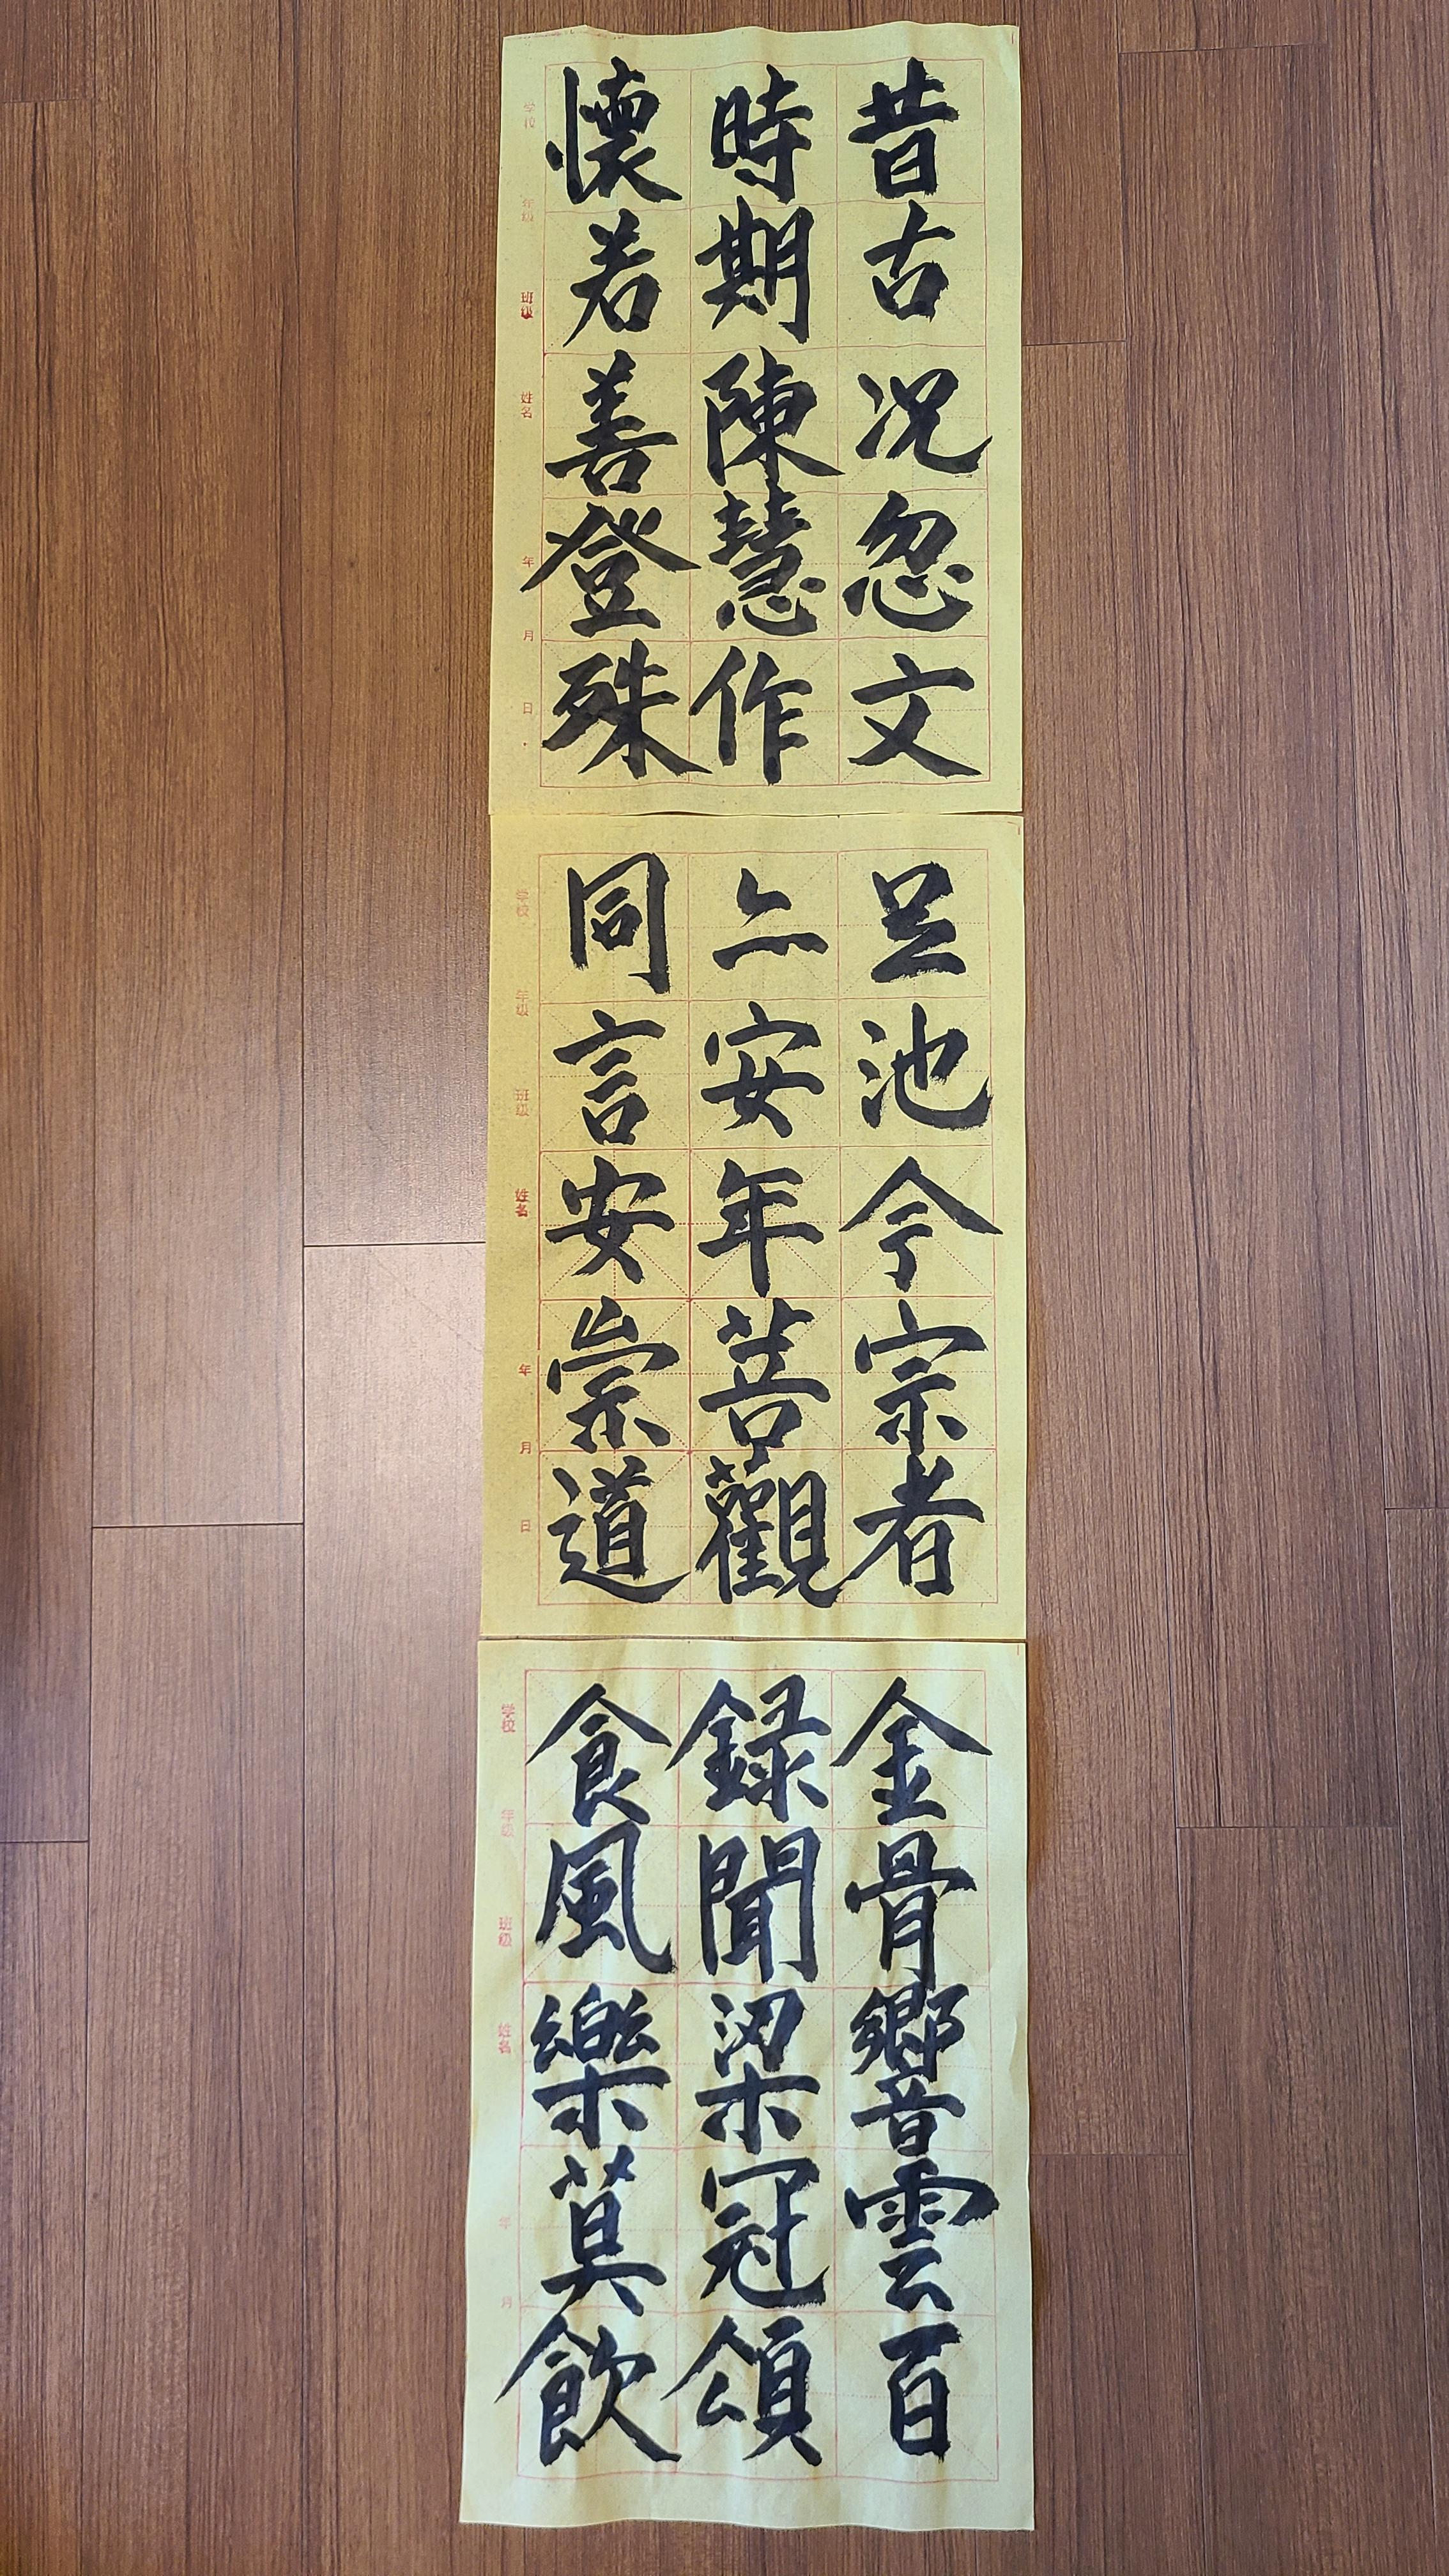 昔古况忽文
時期陳慧作
懷若善登殊
学校 年级 班级 姓名 年 月 日
足池今宗者
安年菩觀
同言安崇道
学校 年级 班级 姓名 年 月 日
金骨響雲百
録聞梁冠頌
食風樂莫飲
学校 年级 班级 姓名 年 月